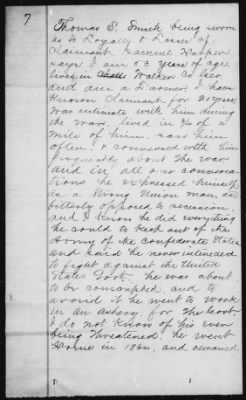 7
Thomas S. Smith being sworn
as to Loyalty & Losses of
Claimant Samuel
says I am 53 years of age
live in Walker Co Geo
and am a Farmer, I have
known Claimant for 20 years
was intimate with him during
the war, lived in ¾ of a
mile of him, saw him
often, & conversed with him
frequently about the war
and in all our conversa-
tions he expressed himself
as a strong Union man, &
bitterly opposed to secession
and I know he did everything
he could to keep out of the
Army of the Confederate States
and said he never intended
to fight against the United
States Govt. he was about
to be conscripted, and to
avoid it he went to work
in an for the Govt.
I do not know of his ever
being threatened. he went
North in 1864, and remained